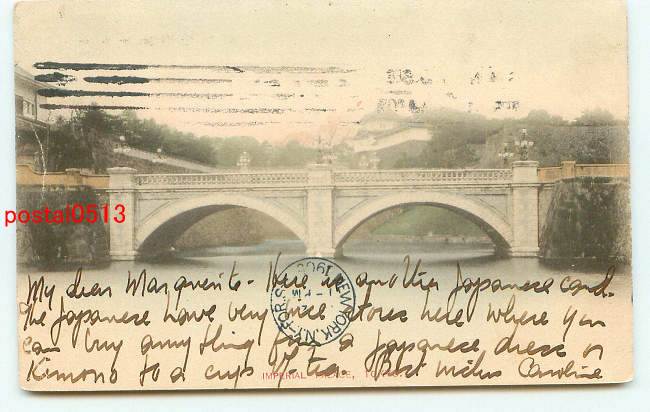 postal0513
1905
NEW YORK, N.Y.
My dear Marguerite - Here is another Japanese card.
The Japanese have very nice stores here where you
can buy anything from a Japanese dress or
Kimono to a cup of tea. Best wishes Caroline
IMPERIAL PALACE, TOKYO.